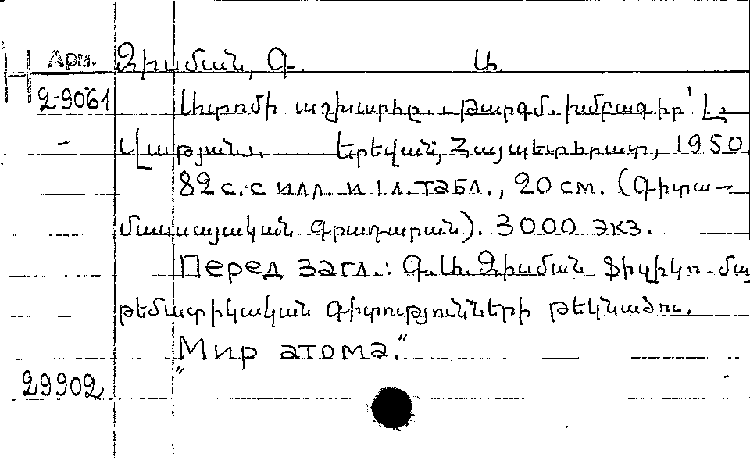 Арм. Զիսման, Գ. Ա.
2-9061 Ատոմի աշխարհը. Թարգմ. խմբագիր՝ Լ.
Վաթյան. Երեվան, Հայպետհրատ, 1950.
82 с. с илл. и 1 л. табл., 20 см. (Գիտա-
մասսայական գրադարան). 3000 экз.
Перед загл.: Գ. Ա. Զիսման ֆիզիկո-մա
թեմատիկական գիտությունների թեկնածու.
"Мир атома."
29902